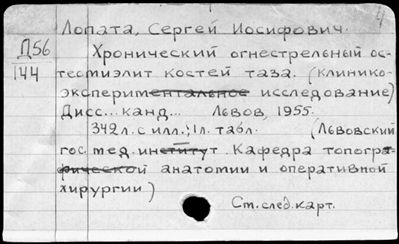 4
Лопата, Сергей Иосифович.
Д56
144
Хронический огнестрельный ос-
теомиэлит костей таза. (клинико-
эксперим исследование)
Дисс... канд... Львов, 1955.
342 л. с илл.; 1 л. табл. (Львовский
гос. мед. инстит. Кафедра топогра-
фической анатомии и оперативной
хирургии)
См. след. карт.